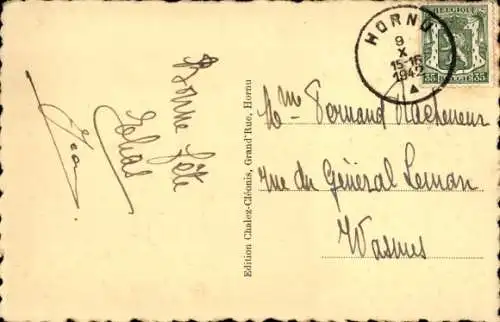 Bonne fête
Jean
Edition Chalez-Cléonis, Grand'Rue, Hornu
HORNU
9
X
15-16
1942
BELGIQUE
35 35
Mme Fernand Macheneur
rue du Général Leman
Wasmes